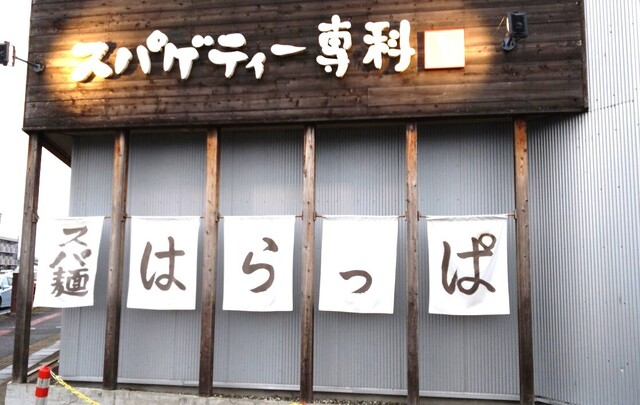 スパゲティー専科
スパ麺
はらっぱ